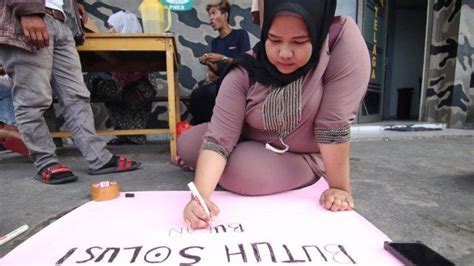 BUTUH SOLUSI
BUKAN